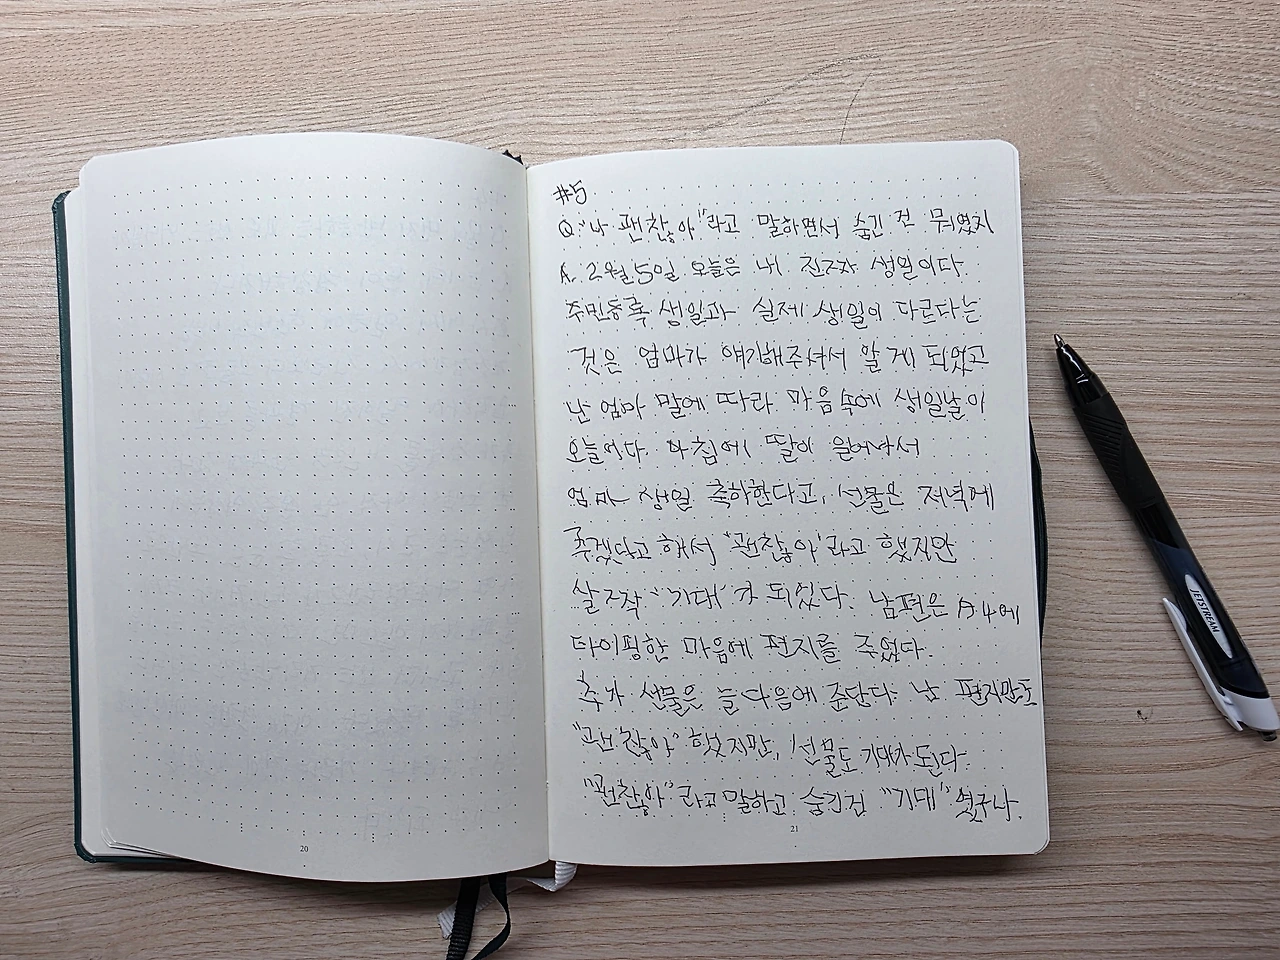 #5
Q. "나 괜찮아"라고 말하면서 숨긴 건 뭐였지
A. 2월 5일 오늘은 내 진짜 생일이다.
주민등록 생일과 실제 생일이 다르다는
것은 엄마가 얘기해주셔서 알게 되었고
난 엄마 말에 따라 마음속에 생일날이
오늘이다. 아침에 딸이 일어나서
엄마 생일 축하한다고, 선물은 저녁에
주겠다고 해서 "괜찮아"라고 했지만
살짝 "기대"가 되었다. 남편은 A4에
타이핑한 마음에 편지를 주었다.
추가 선물은 늘 다음에 준단다. 난 편지만도
"괜찮아" 했지만, 선물도 기대가 된다.
"괜찮아"라고 말하고 숨긴건 "기대"였구나.
20
21
JETSTREAM